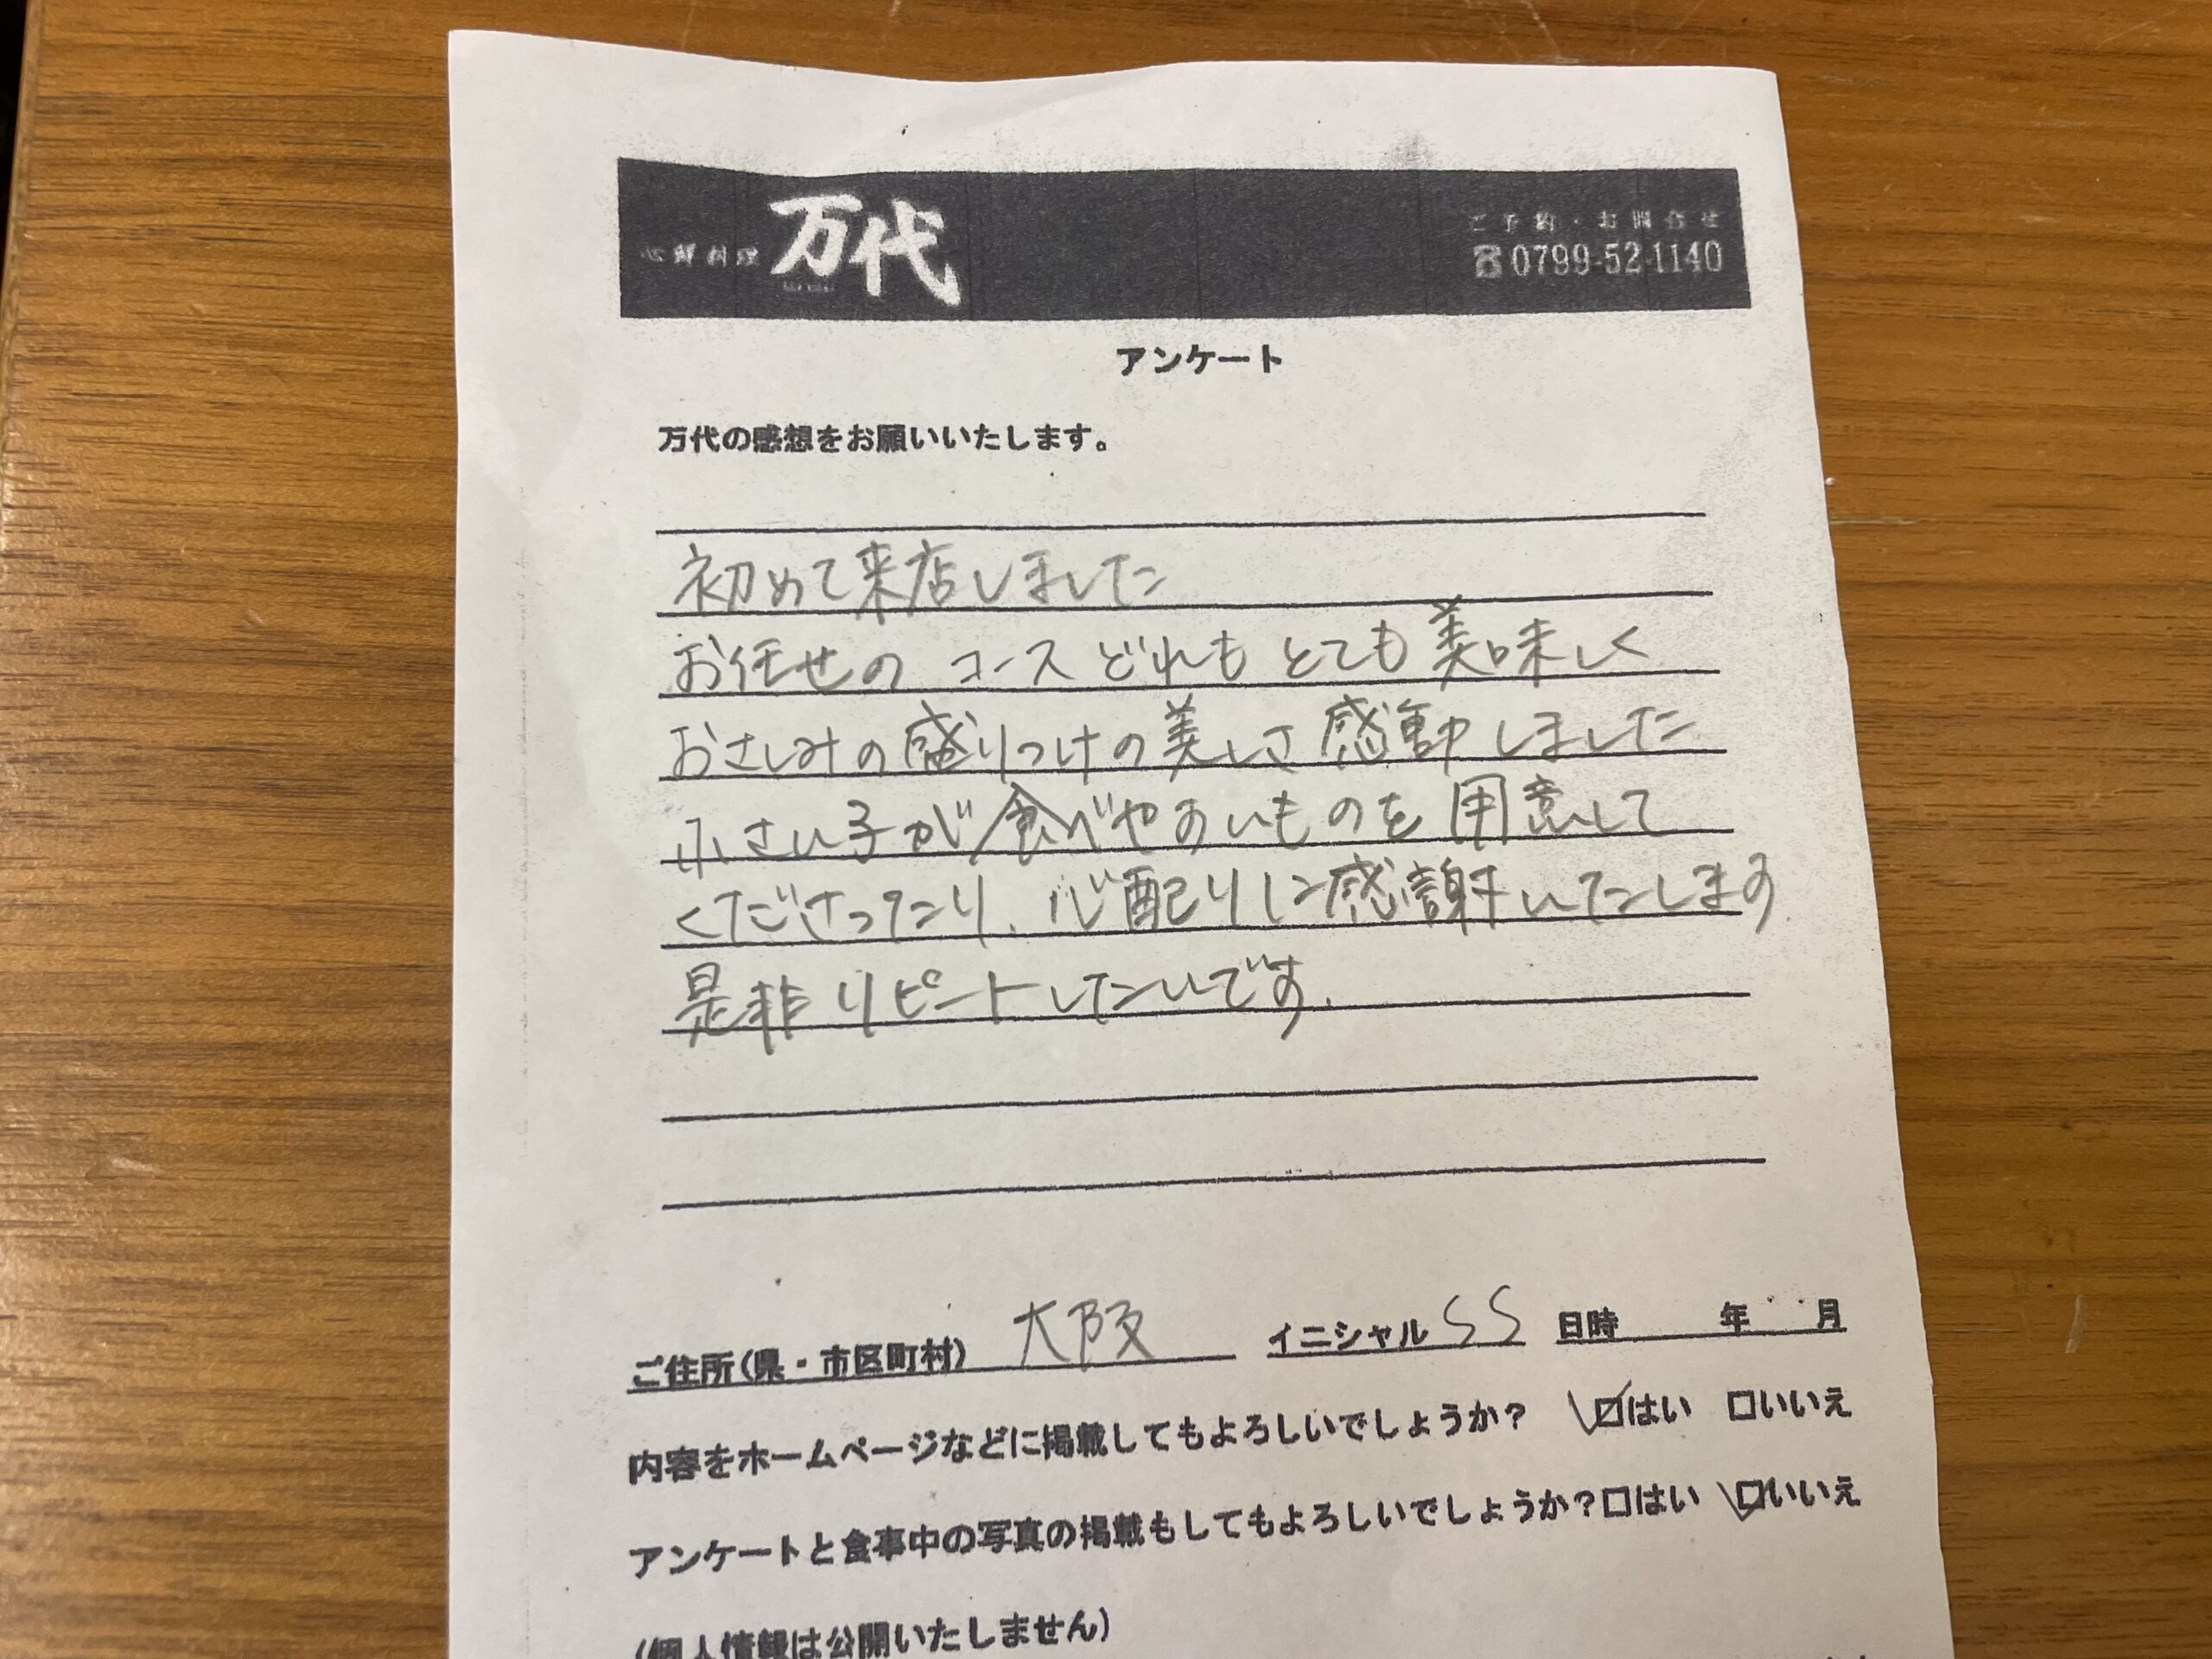 心鮮料理 万代
ご予約・お問合せ
☎0799-52-1140
アンケート
万代の感想をお願いいたします。
初めて来店しました
お任せの コース どれも とても 美味しく
おさしみの盛りつけの美しさ 感動しました
小さい子が食べやすいものを 用意して
くださったり、心配りに感謝いたします
是非リピートしたいです.
ご住所(県・市区町村) 大阪 イニシャル SS 日時 年 月
内容をホームページなどに掲載してもよろしいでしょうか? ☑はい □いいえ
アンケートと食事中の写真の掲載もしてもよろしいでしょうか?□はい ☑いいえ
(個人情報は公開いたしません)